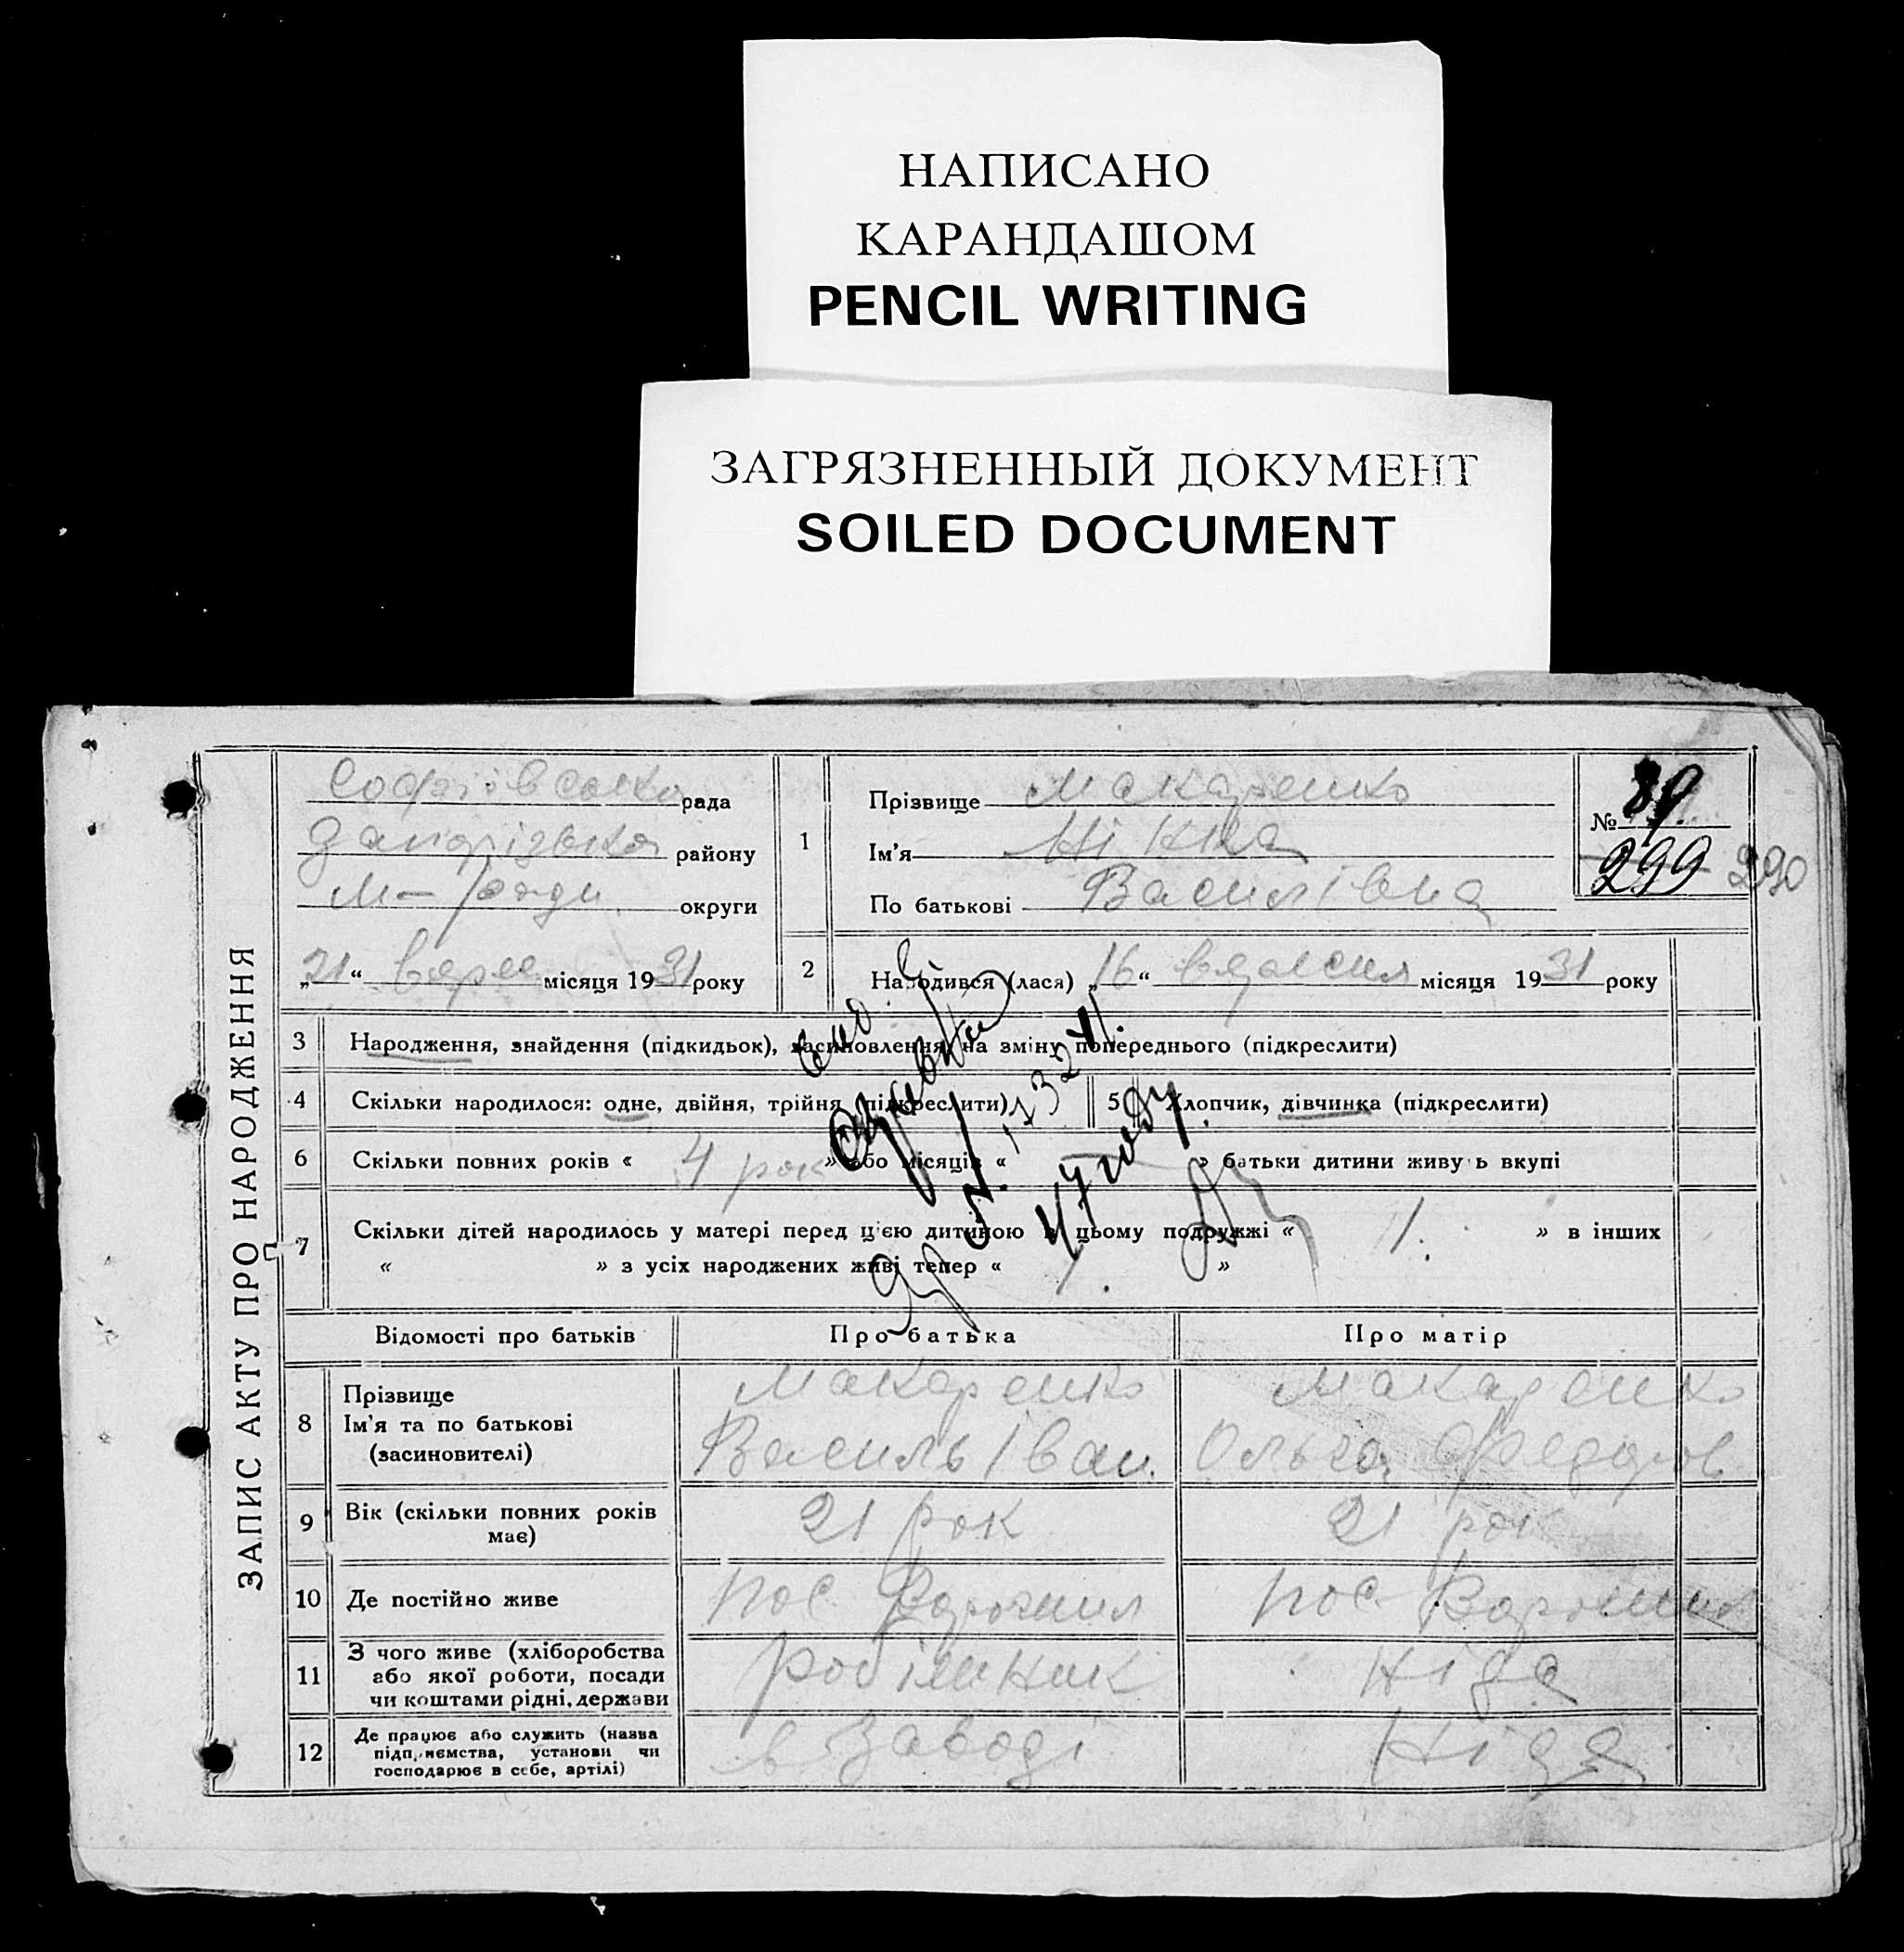 НАПИСАНО
КАРАНДАШОМ
PENCIL WRITING
ЗАГРЯЗНЕННЫЙ ДОКУМЕНТ
SOILED DOCUMENT
ЗАПИС АКТУ ПРО НАРОДЖЕННЯ
Софіївсько рада
району
округи
„21“ верес місяця 1931 року
1
Прізвище Макаренко
Ім'я Нінна
По батькові Василівна
№ 89
299 290
2 Народився (лася) „16“ вересня місяця 1931 року
3 Народження, знайдення (підкидьок), засиновлення, на зміну попереднього (підкреслити)
4 Скільки народилося: одне, двійня, трійня (підкреслити) 5 Хлопчик, дівчинка (підкреслити)
6 Скільки повних років « 4 рок » або місяців « — » батьки дитини живуть вкупі
7 Скільки дітей народилось у матері перед цією дитиною в цьому подружжі « 1. » в інших
« » з усіх народжених живі тепер « 1. »
Відомості про батьків Про батька Про матір
8 Прізвище
Ім'я та по батькові
(засиновителі)
Макаренко
Василь Іван.
Макаренко
Ольга Федоров
9 Вік (скільки повних років
має)
21 рок 21 рок
10 Де постійно живе пос Ворошил пос Ворошил
11 З чого живе (хліборобства
або якої роботи, посади
чи коштами рідні, держави
робітник Ніде
12 Де працює або служить (назва
підприємства, установи чи
господарює в себе, артілі)
в Заводі Ніде